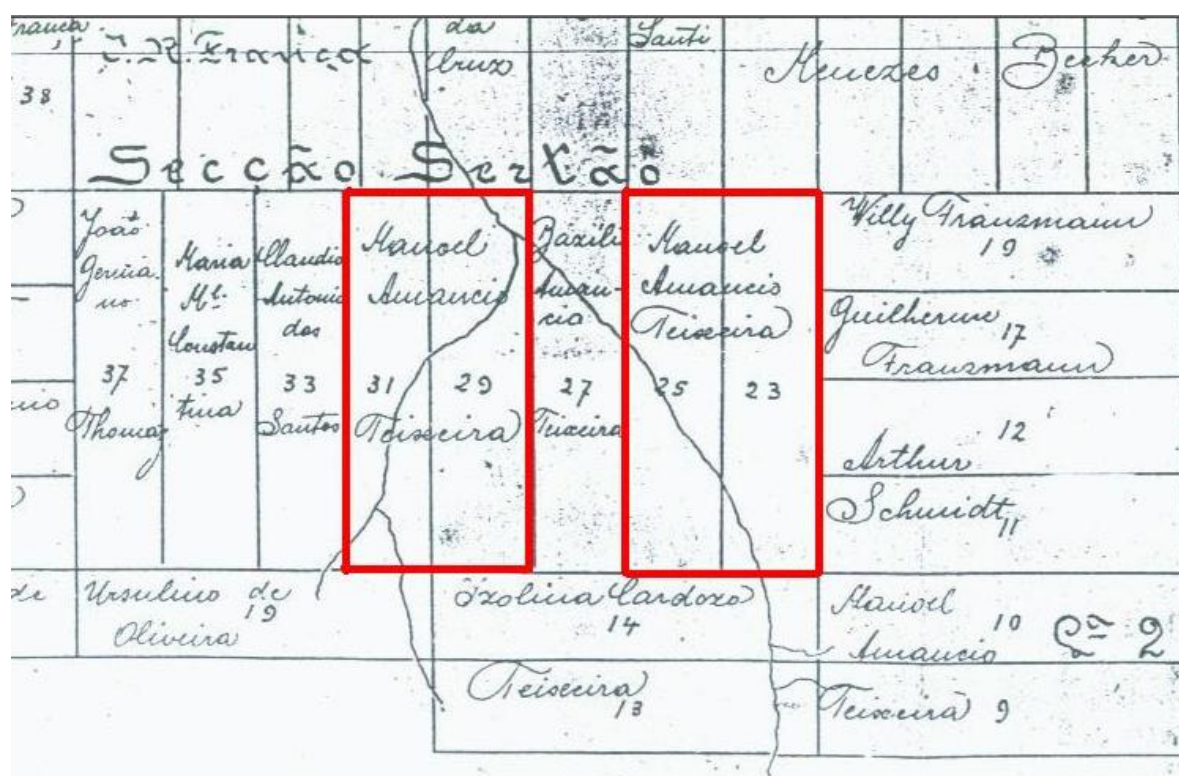 França
J. R. França
da
Cruz
Santi
Menezes
Becker
38
Secção Sertão
João
Germa
no
37
Thomaz
Maria
Mª.
Constan
35
tina
Claudio
Antonio
dos
33
Santos
Manoel
Amancio
31 29
Teixeira
Bazili
Aman-
cio
27
Teixeira
Manoel
Amancio
Teixeira
25 23
Willy Franzmann
19
Guilherme
17
Franzmann
12
Arthur
Schmidt
11
de
Ursulino de
19
Oliveira
Izolina Cardozo
14
Teixeira
13
Manoel
10
Amancio
Teixeira 9
Qª 2